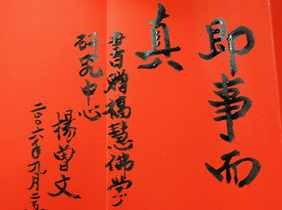 即事而
真
書贈福慧佛学
研究中心
楊曽文
二〇〇六年九月二